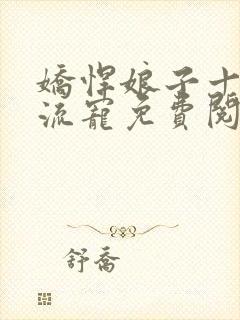 嬌悍娘子十
流寵免費閱
舒喬